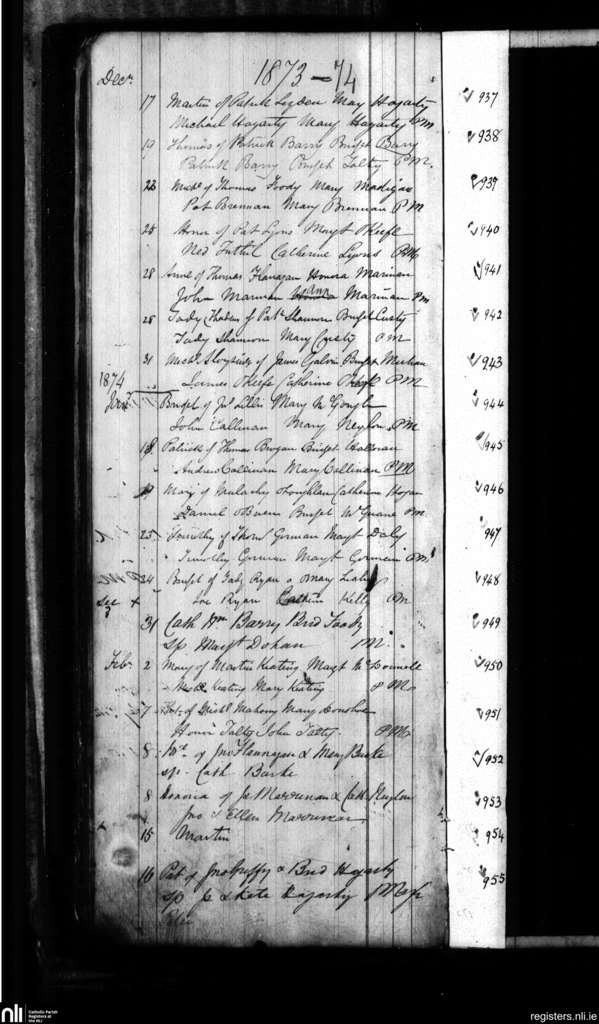 1873-74
Decr
17 Martin of Patrick Lyden Mary Hogarty 937
Michael Hogarty Mary Hogarty PM
19 Thomas of Patrick Barry Bridget Barry 938
Patrick Barry Bridget Talty P.M.
23 Michl of Thomas Toody Mary Madigan 939
Pat Brennan Mary Brennan PM
25 Honor of Pat Lyons Margt Keefe 940
Ned Catherine Lyons PM
28 Anne of Thomas Flanagan Honora Marinan 941
John Marinan Ann Marinan Pm
28 Tady of Patk Shannon Bridget Custy 942
Tady Shannon Mary Custy PM
31 Michl of James Galvin Bridget Meehan 943
James Keefe Catherine Keefe PM
1874
Jany 11 Bridget of Jno Mary McGough 944
John Callinan Mary Neylon PM
18 Patrick of Thomas Brogan Bridget Halloran 945
Andrew Callinan Mary Callinan PM
19 Mary of Malachy OLoughlan Catherine Hogan 946
Daniel OBrien Bridget McGuane PM
25 Timothy of Thos Gorman Margt Daly 947
Timothy Gorman Margt Gorman PM
24 Bridget of Tady Ryan & Mary 948
see + Joe Ryan Kelly PM
31 Cath Wm Barry Brid Toody 949
sp Margt Dohan M.
Feby 2 Mary of Martin Keating Margt McDonnell 950
Michl Keating Mary Keating PM
7 of Michl Mahony Mary Donohoe 951
Honor Talty John Talty PM
8 of Jno Flannagan & Mary Burke 952
sp. Cath Burke
8 Honoria of Marrinan & Cath Neylon 953
Jno & Ellen Marrinan
15 Martin 954
16 Pat of Jno Griffy & Brid Hogarty 955
sp & Kate Hogarty
nli
Catholic Parish
Registers at
the NLI
registers.nli.ie